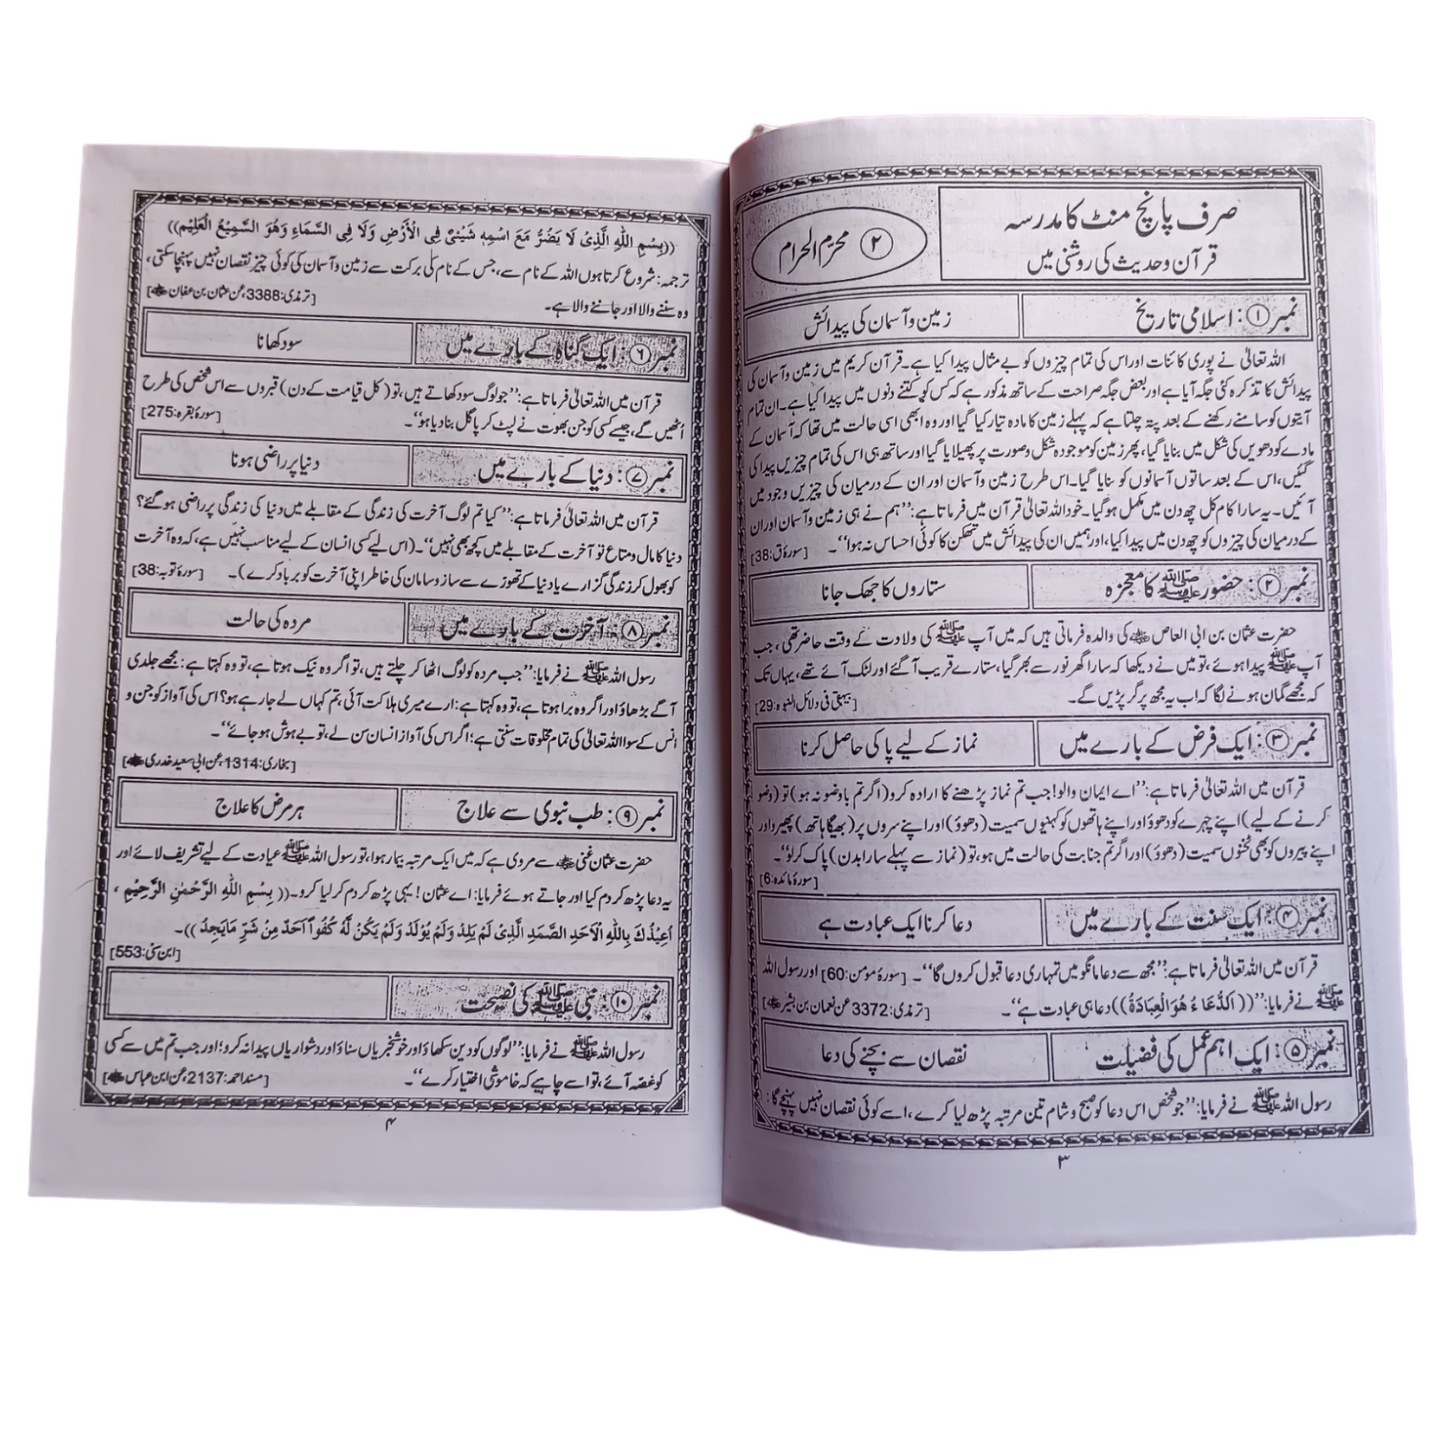 صرف پانچ منٹ کا مدرسہ
قرآن و حدیث کی روشنی میں
۲ محرم الحرام
نمبر ۱: اسلامی تاریخ
زمین و آسمان کی پیدائش
اللہ تعالیٰ نے پوری کائنات اور اس کی تمام چیزوں کو بے مثال پیدا کیا ہے۔ قرآن کریم میں زمین و آسمان کی
پیدائش کا تذکرہ کئی جگہ آیا ہے اور بعض جگہ صراحت کے ساتھ مذکور ہے کہ کس کو کتنے دنوں میں پیدا کیا ہے۔ ان تمام
آیتوں کو سامنے رکھنے کے بعد پتہ چلتا ہے کہ پہلے زمین کا مادہ تیار کیا گیا اور وہ ابھی اسی حالت میں تھا کہ آسمان کے
مادے کو دھویں کی شکل میں بنایا گیا، پھر زمین کو موجودہ شکل و صورت پر پھیلایا گیا اور ساتھ ہی اس کی تمام چیزیں پیدا کی
گئیں، اس کے بعد ساتوں آسمانوں کو بنایا گیا۔ اس طرح زمین و آسمان اور ان کے درمیان کی چیزیں وجود میں
آئیں۔ یہ سارا کام کل چھ دن میں مکمل ہو گیا۔ خود اللہ تعالیٰ قرآن میں فرماتا ہے: ’’ہم نے ہی زمین و آسمان اور ان
کے درمیان کی چیزوں کو چھ دن میں پیدا کیا، اور ہمیں ان کی پیدائش میں تھکن کا کوئی احساس نہ ہوا‘‘۔ [سورۂ ق: 38]
نمبر ۲: حضور ﷺ کا معجزہ
ستاروں کا جھک جانا
حضرت عثمان بن ابی العاص ؓ کی والدہ فرماتی ہیں کہ میں آپ ﷺ کی ولادت کے وقت حاضر تھی، جب
آپ ﷺ پیدا ہوئے، تو میں نے دیکھا کہ سارا گھر نور سے بھر گیا، ستارے قریب آ گئے اور لٹک آئے تھے، یہاں تک
کہ مجھے گمان ہونے لگا کہ اب یہ مجھ پر گر پڑیں گے۔ [بیہقی فی دلائل النبوہ: 29]
نمبر ۳: ایک فرض کے بارے میں
نماز کے لیے پاکی حاصل کرنا
قرآن میں اللہ تعالیٰ فرماتا ہے: ’’اے ایمان والو! جب تم نماز پڑھنے کا ارادہ کرو (اگر تم باوضو نہ ہو) تو (وضو
کرنے کے لیے) اپنے چہرے کو دھوؤ اور اپنے ہاتھوں کو کہنیوں سمیت (دھوؤ) اور اپنے سروں پر (بھیگا ہاتھ) پھیرو اور
اپنے پیروں کو بھی ٹخنوں سمیت (دھوؤ) اور اگر تم جنابت کی حالت میں ہو، تو (نماز سے پہلے سارا بدن) پاک کر لو‘‘۔
[سورۂ مائدہ: 6]
نمبر ۴: ایک سنت کے بارے میں
دعا کرنا ایک عبادت ہے
قرآن میں اللہ تعالیٰ فرماتا ہے: ’’مجھ سے دعا مانگو میں تمہاری دعا قبول کروں گا‘‘۔ [سورۂ مومن: 60] اور رسول اللہ
ﷺ نے فرمایا: ’’((اَلدُّعَاءُ هُوَ الْعِبَادَةُ)) دعا ہی عبادت ہے‘‘۔ [ترمذی: 3372، عن نعمان بن بشیر ؓ]
نمبر ۵: ایک اہم عمل کی فضیلت
نقصان سے بچنے کی دعا
رسول اللہ ﷺ نے فرمایا: ’’جو شخص اس دعا کو صبح و شام تین مرتبہ پڑھ لیا کرے، اسے کوئی نقصان نہیں پہنچے گا:
۳
((بِسْمِ اللّٰهِ الَّذِیْ لَا یَضُرُّ مَعَ اسْمِهٖ شَیْئٌ فِی الْاَرْضِ وَلَا فِی السَّمَاءِ وَهُوَ السَّمِیْعُ الْعَلِیْمِ))
ترجمہ: شروع کرتا ہوں اللہ کے نام سے، جس کے نام کی برکت سے زمین و آسمان کی کوئی چیز نقصان نہیں پہنچا سکتی،
وہ سننے والا اور جاننے والا ہے۔ [ترمذی: 3388، عن عثمان بن عفان ؓ]
نمبر ۶: ایک گناہ کے بارے میں
سود کھانا
قرآن میں اللہ تعالیٰ فرماتا ہے: ’’جو لوگ سود کھاتے ہیں، تو (کل قیامت کے دن) قبروں سے اس شخص کی طرح
اُٹھیں گے، جیسے کسی کو جن بھوت نے لپٹ کر پاگل بنا دیا ہو‘‘۔ [سورۂ بقرہ: 275]
نمبر ۷: دنیا کے بارے میں
دنیا پر راضی ہونا
قرآن میں اللہ تعالیٰ فرماتا ہے: ’’کیا تم لوگ آخرت کی زندگی کے مقابلے میں دنیا کی زندگی پر راضی ہو گئے؟
دنیا کا مال و متاع تو آخرت کے مقابلے میں کچھ بھی نہیں‘‘۔ (اس لیے کسی انسان کے لیے مناسب نہیں ہے، کہ وہ آخرت
کو بھول کر زندگی گزارے یا دنیا کے تھوڑے سے ساز و سامان کی خاطر اپنی آخرت کو برباد کرے)۔ [سورۂ توبہ: 38]
نمبر ۸: آخرت کے بارے میں
مردہ کی حالت
رسول اللہ ﷺ نے فرمایا: ’’جب مردہ کو لوگ اٹھا کر چلتے ہیں، تو اگر وہ نیک ہوتا ہے، تو وہ کہتا ہے: مجھے جلدی
آگے بڑھاؤ اور اگر وہ برا ہوتا ہے، تو وہ کہتا ہے: ارے میری ہلاکت آئی، تم کہاں لے جا رہے ہو؟ اس کی آواز کو جن و
انس کے سوا اللہ تعالیٰ کی تمام مخلوقات سنتی ہے؛ اگر اس کی آواز انسان سن لے، تو بے ہوش ہو جائے‘‘۔
[بخاری: 1314، عن ابی سعید خدری ؓ]
نمبر ۹: طب نبوی سے علاج
ہر مرض کا علاج
حضرت عثمان غنی ؓ سے مروی ہے کہ میں ایک مرتبہ بیمار ہوا، تو رسول اللہ ﷺ عیادت کے لیے تشریف لائے اور
یہ دعا پڑھ کر دم کیا اور جاتے ہوئے فرمایا: اے عثمان! یہی پڑھ کر دم کر لیا کرو۔ ((بِسْمِ اللّٰهِ الرَّحْمٰنِ الرَّحِیْمِ،
اُعِیْذُكَ بِاللّٰهِ الْاَحَدِ الصَّمَدِ الَّذِیْ لَمْ یَلِدْ وَلَمْ یُوْلَدْ وَلَمْ یَكُنْ لَّهٗ كُفُوًا اَحَدٌ مِنْ شَرِّ مَا یَجِدُ))۔
[ابن سنی: 553]
نمبر ۱۰: نبی ﷺ کی نصیحت
رسول اللہ ﷺ نے فرمایا: ’’لوگوں کو دین سکھاؤ اور خوشخبریاں سناؤ اور دشواریاں پیدا نہ کرو؛ اور جب تم میں سے کسی
کو غصہ آئے، تو اسے چاہیے کہ خاموشی اختیار کرے‘‘۔ [مسند احمد: 2137، عن ابن عباس ؓ]
۴